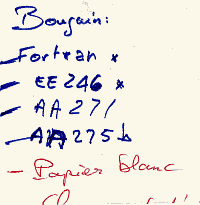 Bouquin:
- Fortran x
- EE 246 x
- AA 271
- AA 275 b
- Papier blanc